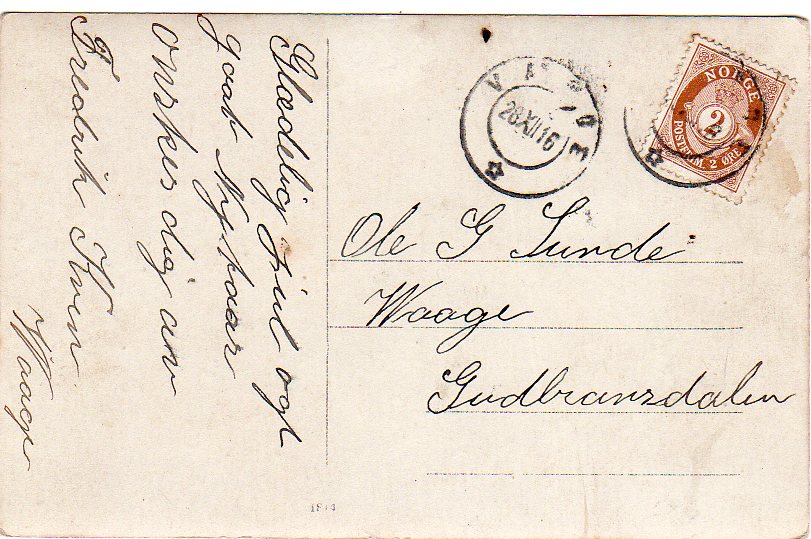 Glædelig jul ogt
godt Nyt aar
onskes dig av
Fredrik Kven
Waage
28 XII 16
NORGE
2
POSTFRIM. 2 ØRE
Ole G Sunde
Waage
Gudbransdalen